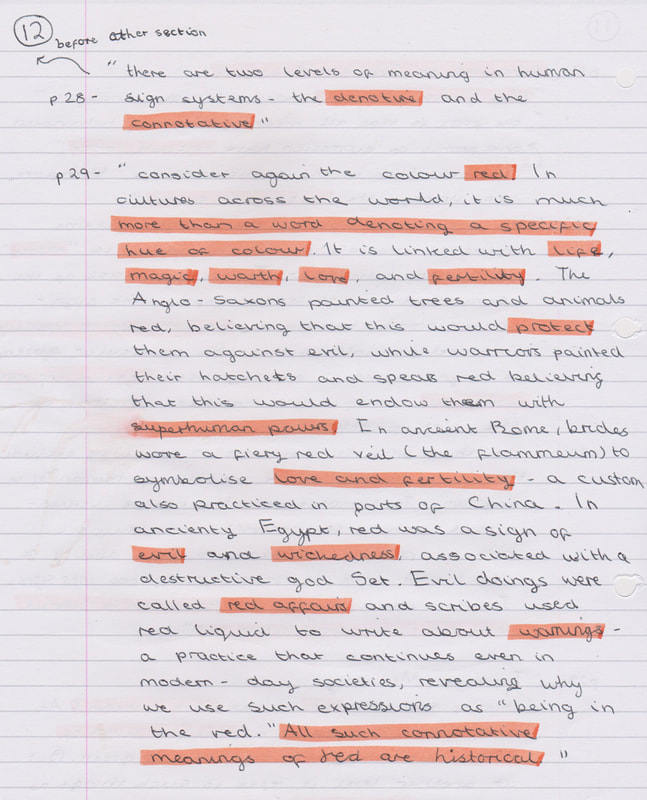 12
before other section
"there are two levels of meaning in human
p28- sign systems - the denotive and the
connotative"
p29- "consider again the colour red. In
cultures across the world, it is much
more than a word denoting a specific
hue of colour. It is linked with life,
magic, warth, love, and fertility. The
Anglo-Saxons painted trees and animals
red, believing that this would protect
them against evil, while warriors painted
their hatchets and spears red believing
that this would endow them with
superhuman powrs. In ancient Rome, brides
wore a fiery red veil (the flammeum) to
symbolise love and fertility - a custom
also practiced in parts of China. In
ancienty Egypt, red was a sign of
evil and wickedness, associated with a
destructive god Set. Evil doings were
called red affairs and scribes used
red liquid to write about warnings -
a practice that continues even in
modern-day societies, revealing why
we use such expressions as "being in
the red." All such connotative
meanings of red are historical."